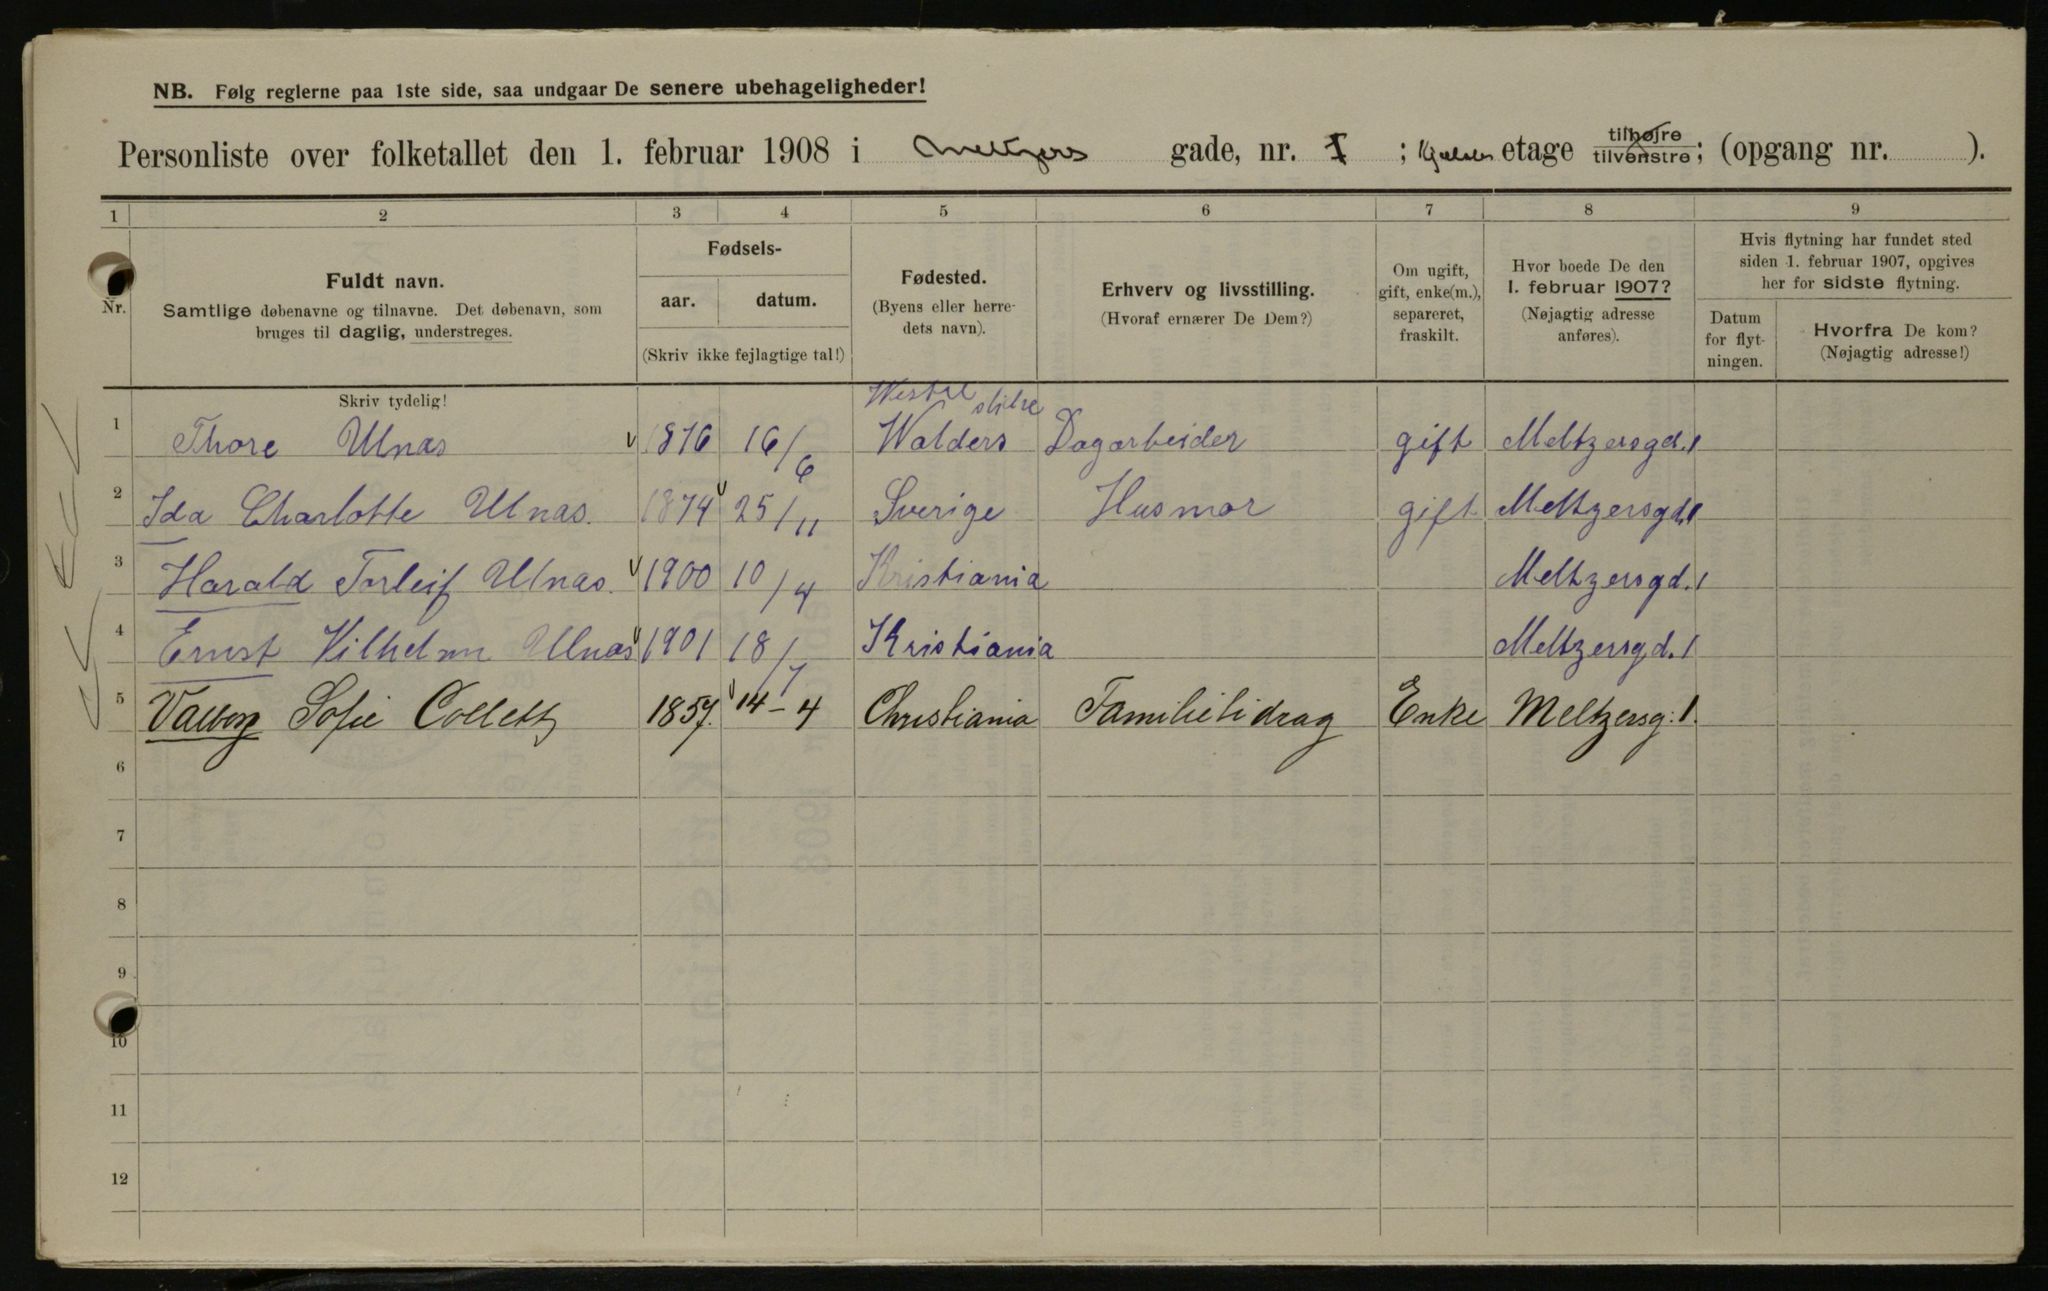 NB. Følg reglerne paa 1ste side, saa undgaar De senere ubehageligheder!
Personliste over folketallet den 1. februar 1908 i Meltzers gade, nr. 1; Kjelder etage tilhøjre tilvenstre; (opgang nr. ).
1 2 3 4 5 6 7 8 9
Nr.
Fuldt navn.
Samtlige døbenavne og tilnavne. Det døbenavn, som
bruges til daglig, understreges.
Fødsels-
aar. datum.
(Skriv ikke fejlagtige tal!)
Fødested.
(Byens eller herre-
dets navn).
Erhverv og livsstilling.
(Hvoraf ernærer De Dem?)
Om ugift,
gift, enke(m.),
separeret,
fraskilt.
Hvor boede De den
1. februar 1907?
(Nøjagtig adresse
anføres).
Hvis flytning har fundet sted
siden 1. februar 1907, opgives
her for sidste flytning.
Datum
for flyt-
ningen.
Hvorfra De kom?
(Nøjagtig adresse!)
Skriv tydelig!
Westre slidre
1 Thore Ulnas 1876 16/6 Walders Dagarbeider gift Meltzersgd. 1
2 Ida Charlotte Ulnas. 1874 25/11 Sverige Husmor gift Meltzersgd. 1
3 Harald Torleif Ulnas. 1900 10/4 Kristiania Meltzersgd. 1
4 Ernst Vilhelm Ulnas 1901 18/7 Kristiania Meltzersgd. 1
5 Valborg Sofie Collett 1857. 14-4 Christiania Familiebidrag Enke Meltzersg: 1.
6
7
8
9
10
11
12